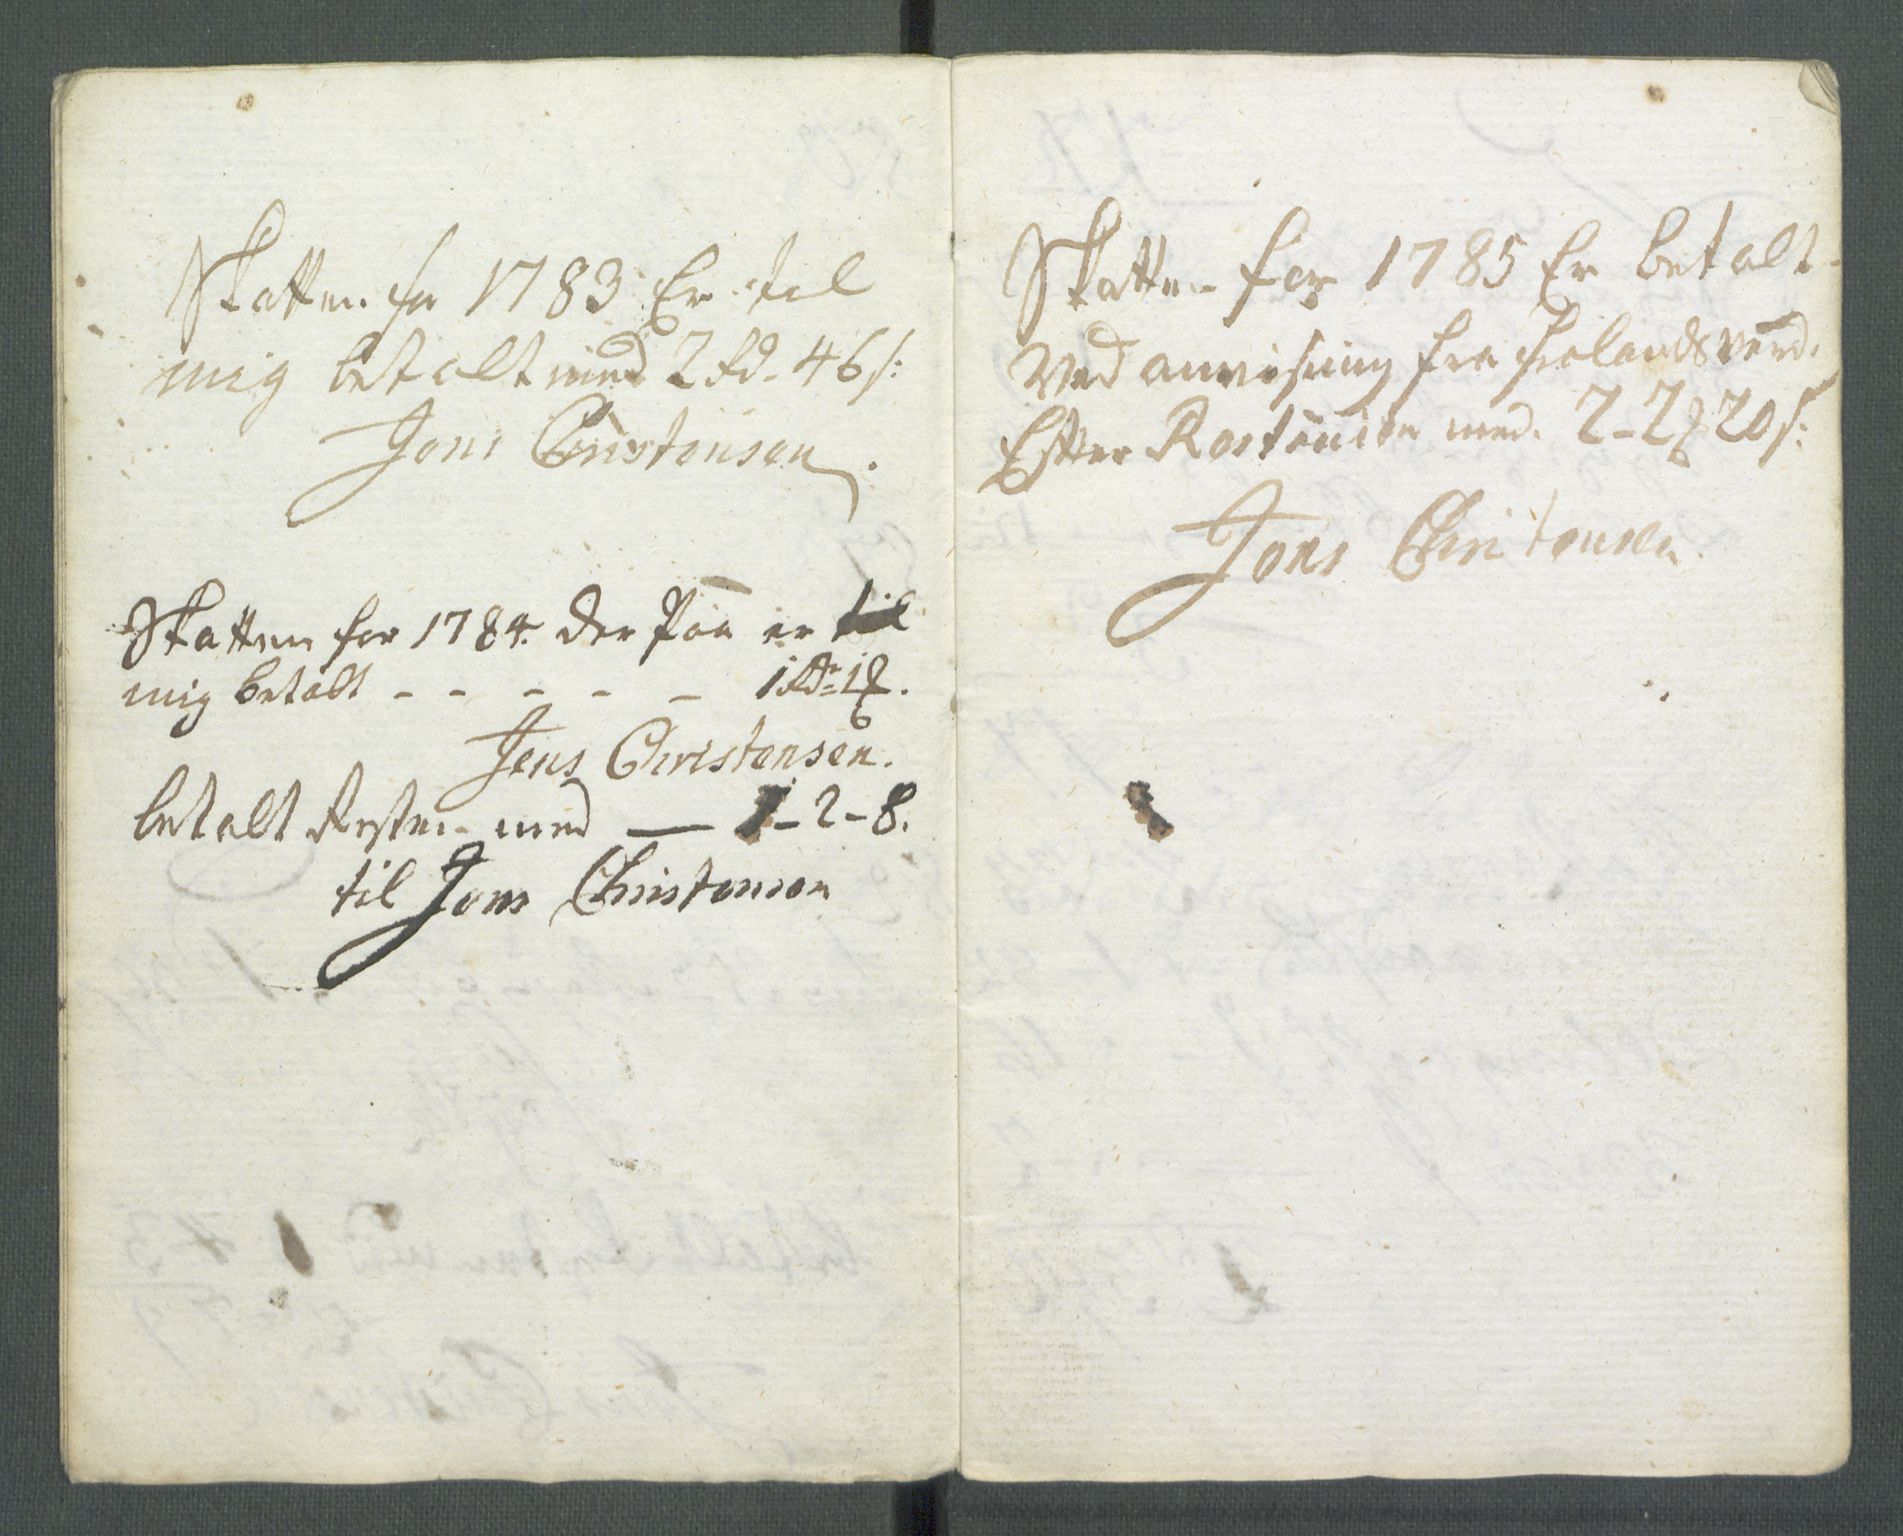 Skatten for 1783 Er til
mig betalt med 2 Rd. 46 s:
Jens Christensen.
Skatten for 1784. der Paa er til
mig betalt - - - - - 1 Rdr 1
Jens Christensen.
betalt Resten med — 1 - 2 - 8.
til Jens Christensen
Skatten for 1785 Er betalt
Ved anvisning fra
Efter med. 2 - 2 20 s:
Jens Christensen.